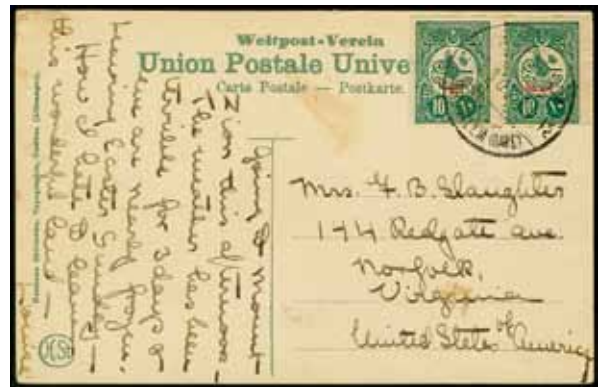 Weltpost-Verein
Union Postale Unive
Carte Postale — Postkarte.
10 10
Going to Mount
Zion this afternoon -
The weather has been
terrible for 3 days &
we are nearly frozen.
Leaving Easter Sunday -
How I hate to leave
this wonderful land -
Mrs. F. B. Slaughter
144 Redgate ave.
Norfolk,
Virginia
United States of America